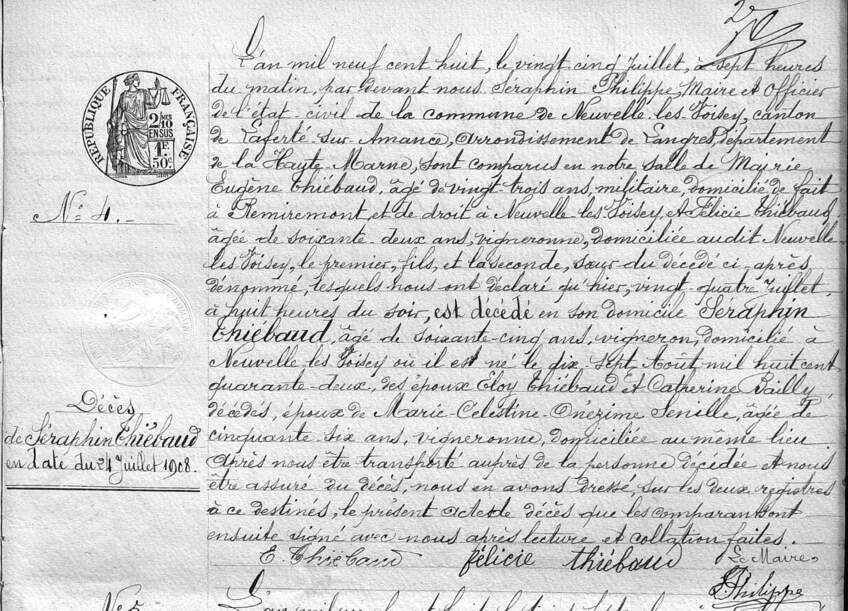 2
L'an mil neuf cent huit, le vingt-cinq juillet, à sept heures
du matin, par devant nous Séraphin Philippe, Maire et Officier
de l'état-civil de la commune de Neuvelle-les-Voisey, canton
de Laferté-sur-Amance, arrondissement de Langres, département
de la Haute-Marne, sont comparus en notre salle de Mairie
Eugène Thiébaud, âgé de vingt-trois ans, militaire, domicilié de fait
à Remiremont, et de droit à Neuvelle-les-Voisey, et Félicie Thiébaud,
âgée de soixante-deux ans, vigneronne, domiciliée audit Neuvelle-
les-Voisey, le premier, fils, et la seconde, sœur du décédé ci-après
dénommé, lesquels nous ont déclaré qu'hier, vingt-quatre juillet,
à huit heures du soir, est décédé en son domicile Séraphin
Thiébaud, âgé de soixante-cinq ans, vigneron, domicilié à
Neuvelle-les-Voisey où il est né le dix-sept Août mil huit cent
quarante-deux, des époux Eloy Thiébaud et Catherine Bailly,
décédés, époux de Marie-Celestine-Onézime Senille, âgée de
cinquante-six ans, vigneronne, domiciliée au même lieu
Après nous être transporté auprès de la personne décédée et nous
être assuré du décès, nous en avons dressé, sur les deux registres
à ce destinés, le présent acte de décès que les comparants ont
ensuite signé avec nous après lecture et collation faites.
E. Thiébaud Félicie Thiébaud Le Maire,
S. Philippe
RÉPUBLIQUE FRANÇAISE
2/10
EN SUS
1F
50c
N° 4.-
Décès
de Séraphin Thiébaud
en date du 24 Juillet 1908.
N° 5
L'an mil neuf cent huit